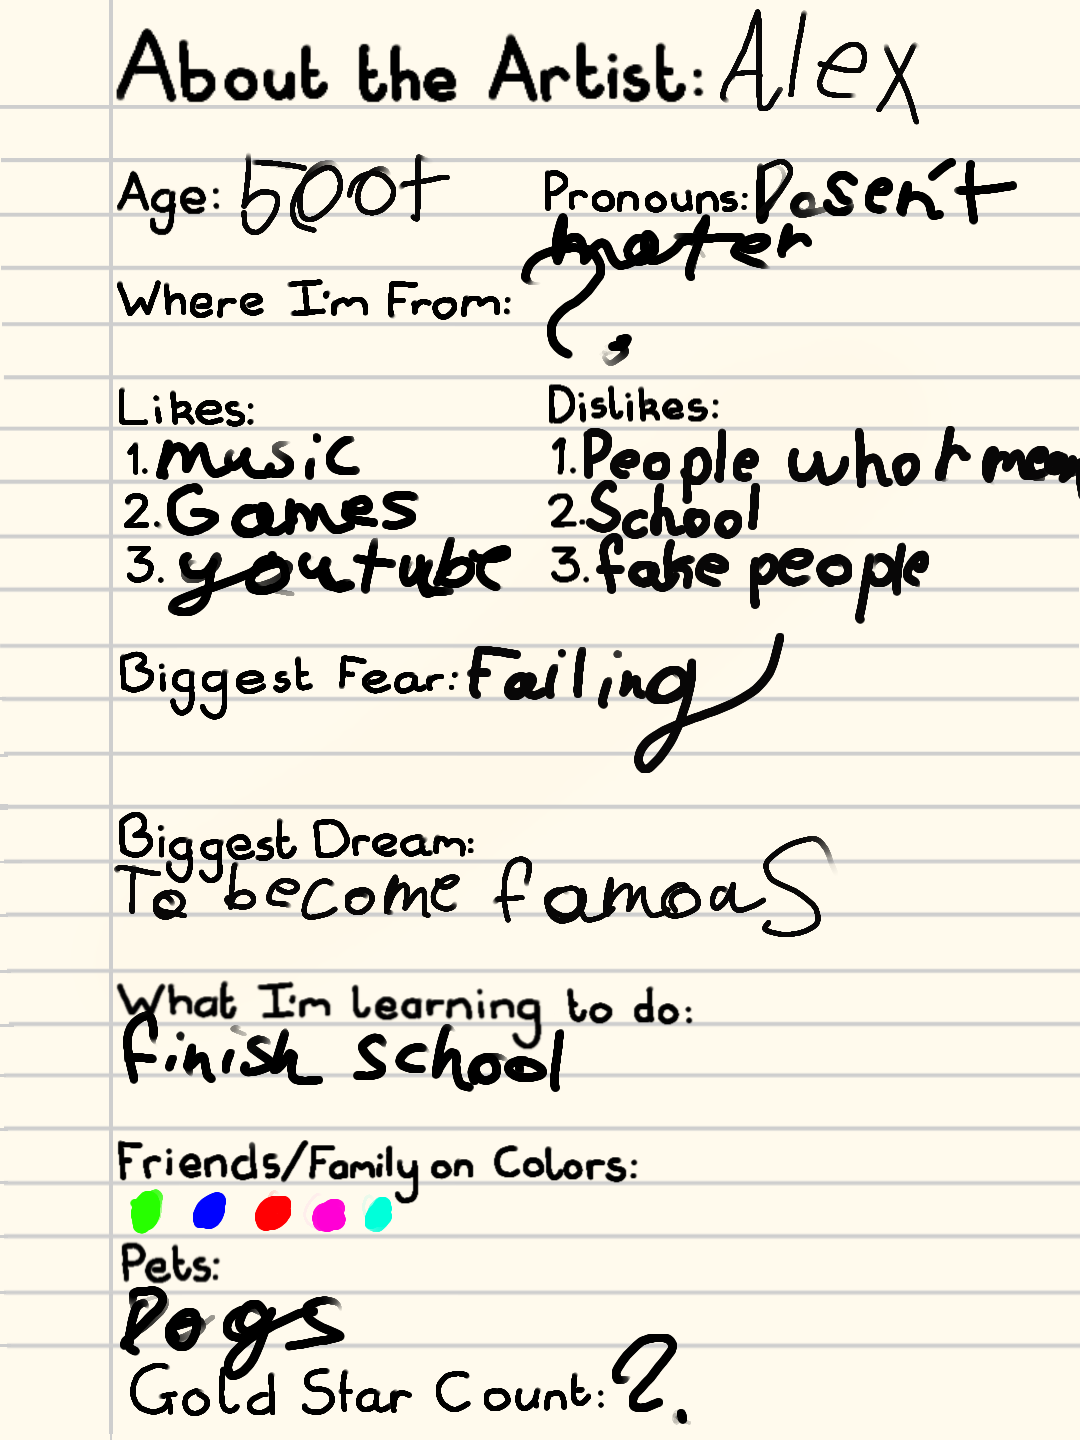 About the Artist: Alex
Age: 500+ Pronouns: Dosen't
mater
Where I'm From: ?
Likes: Dislikes:
1. music 1. People who r mean
2. Games 2. School
3. youtube 3. fake people
Biggest Fear: Failing
Biggest Dream:
To become famoas
What I'm learning to do:
finish school
Friends/Family on Colors:
Pets:
Dogs
Gold Star Count: ?